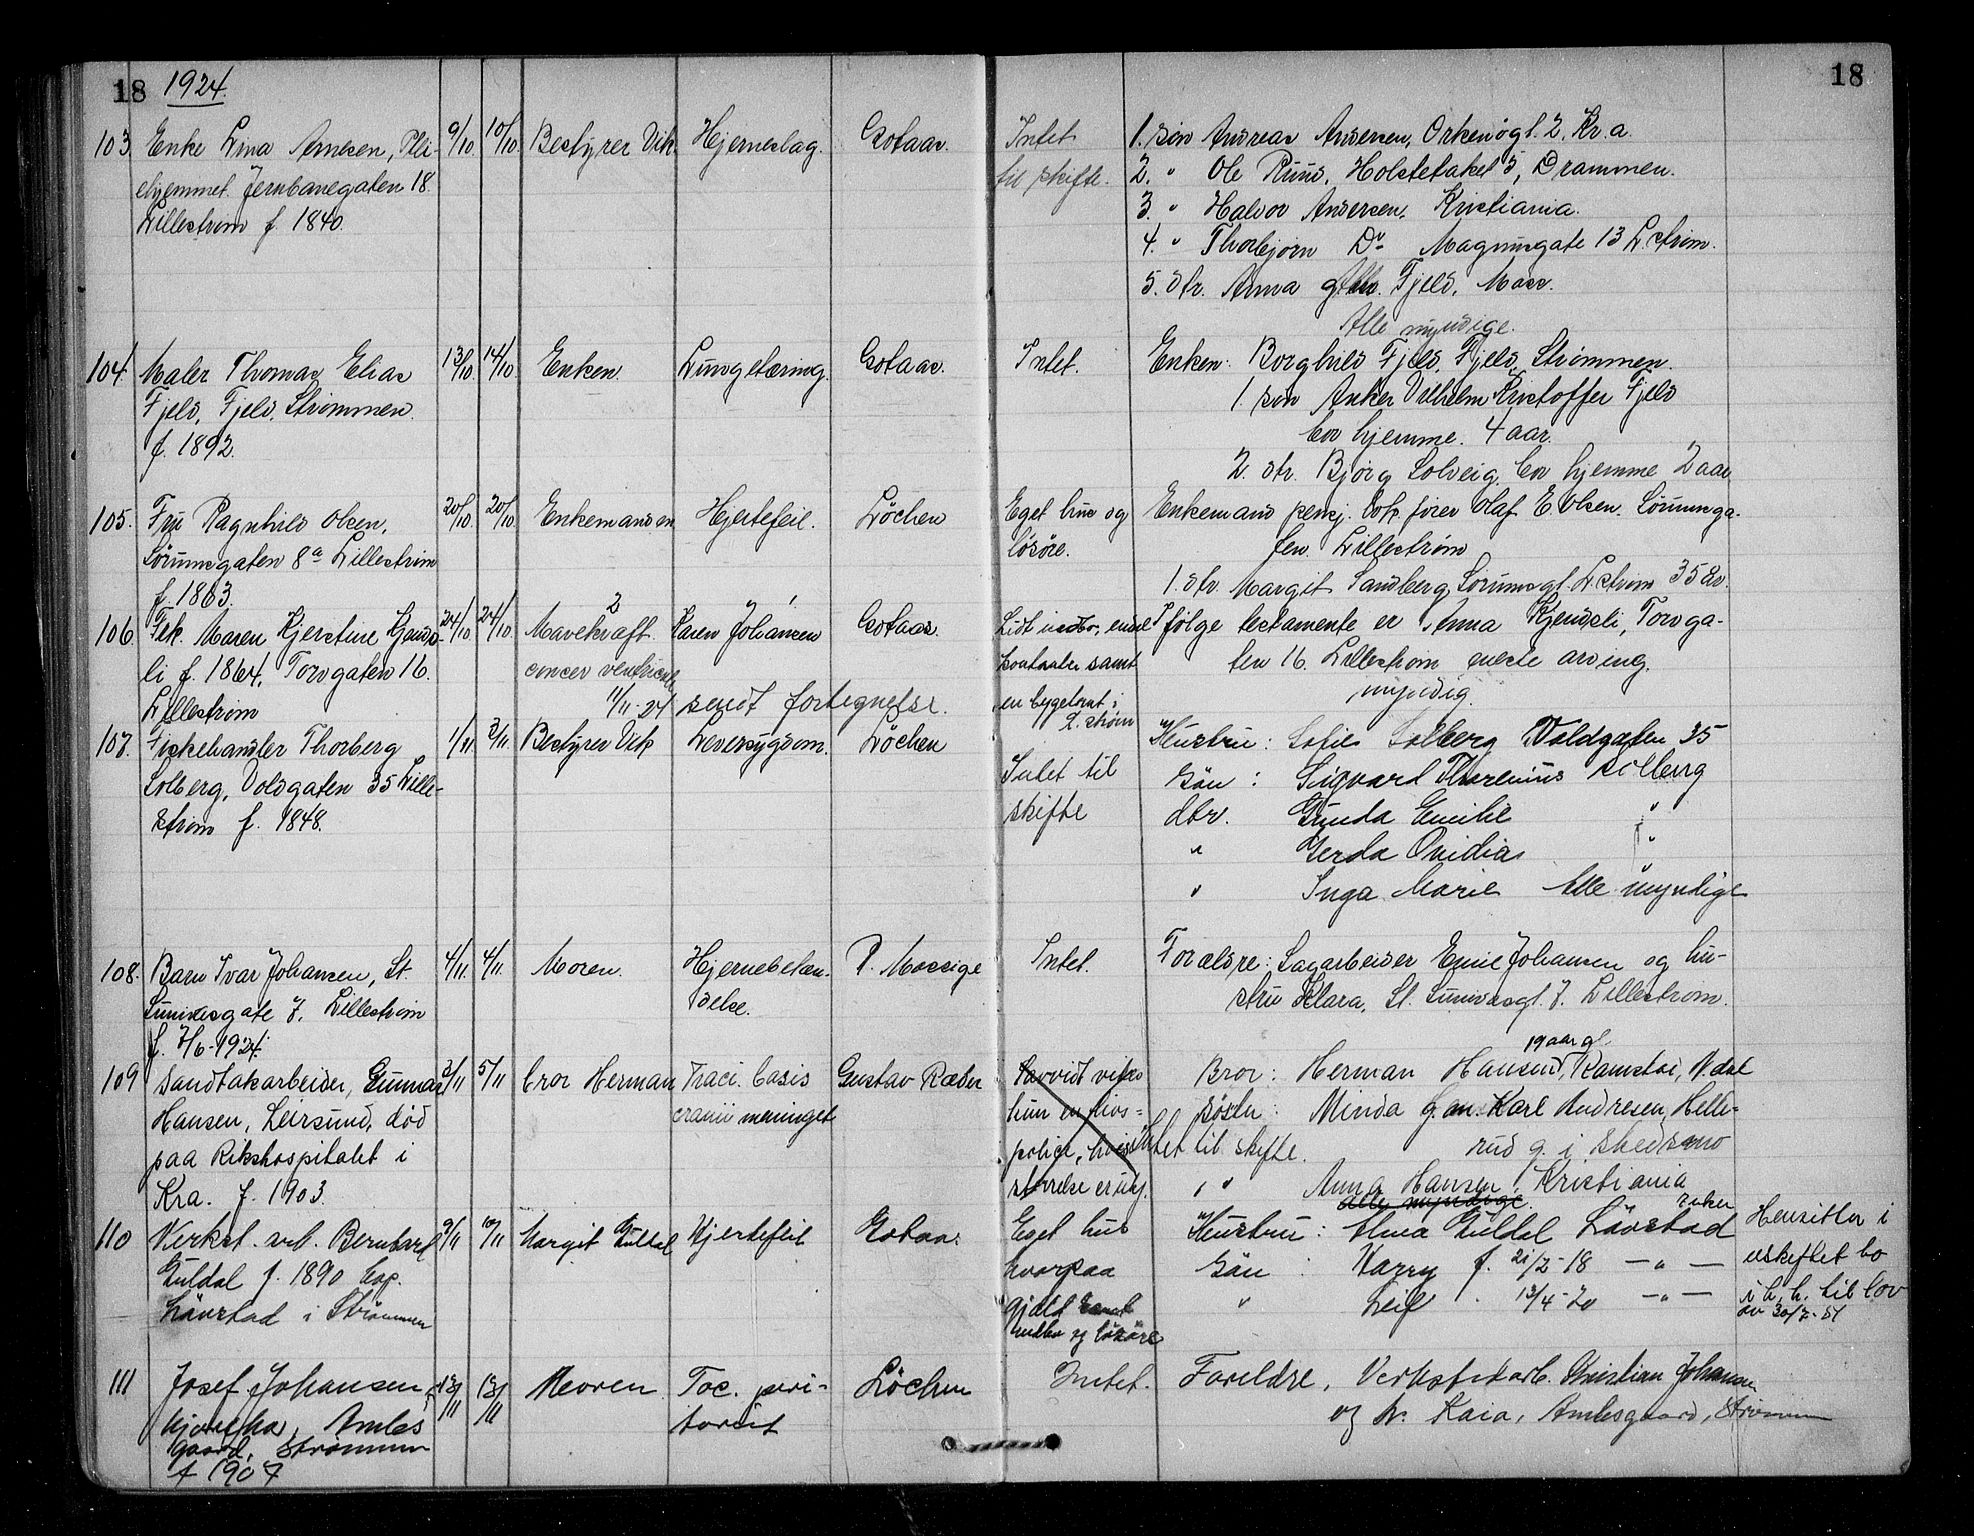 18 1924. 18
103 Enke Lina Arnesen, Plei- 9/10. 10/10 Bestyrer Vik. Hjerneslag. Gotaas. Intet 1. søn Andreas Andersen, Orkenögt. 2, Kr.a.
ehjemmet. Jernbanegaten 18. til skifte. 2. " Ole Ruud, Holstetaket 5, Drammen.
Lillestrøm f. 1840. 3. " Halvor Andersen, Kristiania.
4. " Thorbjørn Do Magnusgate 13 L.strøm.
5. dtr. Anna g. Fjeld, Moss.
Alle myndige.
104. Maler Thomas Elias 13/10. 14/10 Enken. Lungetæring. Gotaas. Intet. Enken: Borghild Fjeld, Fjeld, Strømmen.
Fjeld, Fjeld, Strømmen. 1. søn Anker Vilhelm Kristoffer Fjeld
f. 1892. bor hjemme. 4 aar.
2. dtr. Bjørg Solveig, bor hjemme 2 aar
105. Fru Ragnhild Olsen, 20/10. 20/10 Enkemanden Hjertefeil. Løchen Eget hus og Enkemand pensj. lok. fører Olaf E. Olsen. Sørumsga-
Sørumsgaten 8a Lillestrøm løsøre. ten Lillestrøm
f. 1863. 1. dtr. Margit Sandberg, Sørumsgt. L.strøm 35 år.
106. Frk. Maren Kjerstine Kjends- 24/10 24/10 Mavekræft. 2 Karen Johansen 1 Gotaas. Lidt indbo, endel Ifølge testamente er Anna Kjendsli, Torvga-
li f. 1864. Torvgaten 16. cancer ventriculi kontanter samt ten 16. Lillestrøm eneste arving.
Lillestrøm 11/11-24 sendt fortegnelse. en bygetomt i L.strøm myndig.
107. Fiskehandler Thorberg 1/11 3/11. Bestyrer Vik Leversygdom. Løchen Hustru: Sofie Solberg Voldgaten 35
Solberg, Voldgaten 35 Lille- Intet til Søn: Sigvard Thorenius Solberg
strøm f. 1848. skifte dtr. Gunda Emilie "
" Gerda Ovidia "
" Inga Marie " Alle myndige
108. Barn Ivar Johansen, St. 4/11. 4/11. Moren. Hjernebetæn- P. Mossige Intet. Forældre: Sagarbeider Emil Johansen og hu-
Sunivasgate 7. Lillestrøm delse. stru Klara, St. Sunivasgt. 7. Lillestrøm.
f. 7/6-1924.
109 Sandtakarbeider, Gunnar 3/11 5/11 bror Herman Fract. basis Gustav Ræder Saavidt vites Bror: Herman Hansen, 19 aar gl. Ramstad, N.dal
Hansen, Leirsund, død cranii meninget kun en livs- Søster: Minda g. m. Karl Andresen, Helle-
paa Rikshospitalet i polise, hvis Intet til skifte. rud g. i Skedsmo
Kra. f. 1903. størrelse er uvis. " " Anna Hansen, Kristiania
Alle myndige.
110 Verkst. arb. Bernhard 9/11 10/11 Margit Guldal Hjertefeil Gotaas. Eget hus Hustru: Alma Guldal Løvstad Enken Hensitter i
Guldal f. 1890 bop. hvorpaa Søn : Harry f. 21/2-18 — " — uskiftet bo
Løvstad i Strømmen gjæld samt " Leif " 13/4-20 — " — i h. h. til lov
indbo og løsøre av 30/7-51
111 Josef Johansen 12/11 13/11 Moren Toc. peri- Løchen Intet. Foreldre, Verkstedarb. Kristian Johansen
Amles tonit og h. Kaia, Amlesgaard, Strømmen
gaard, Strømmen
f 1907